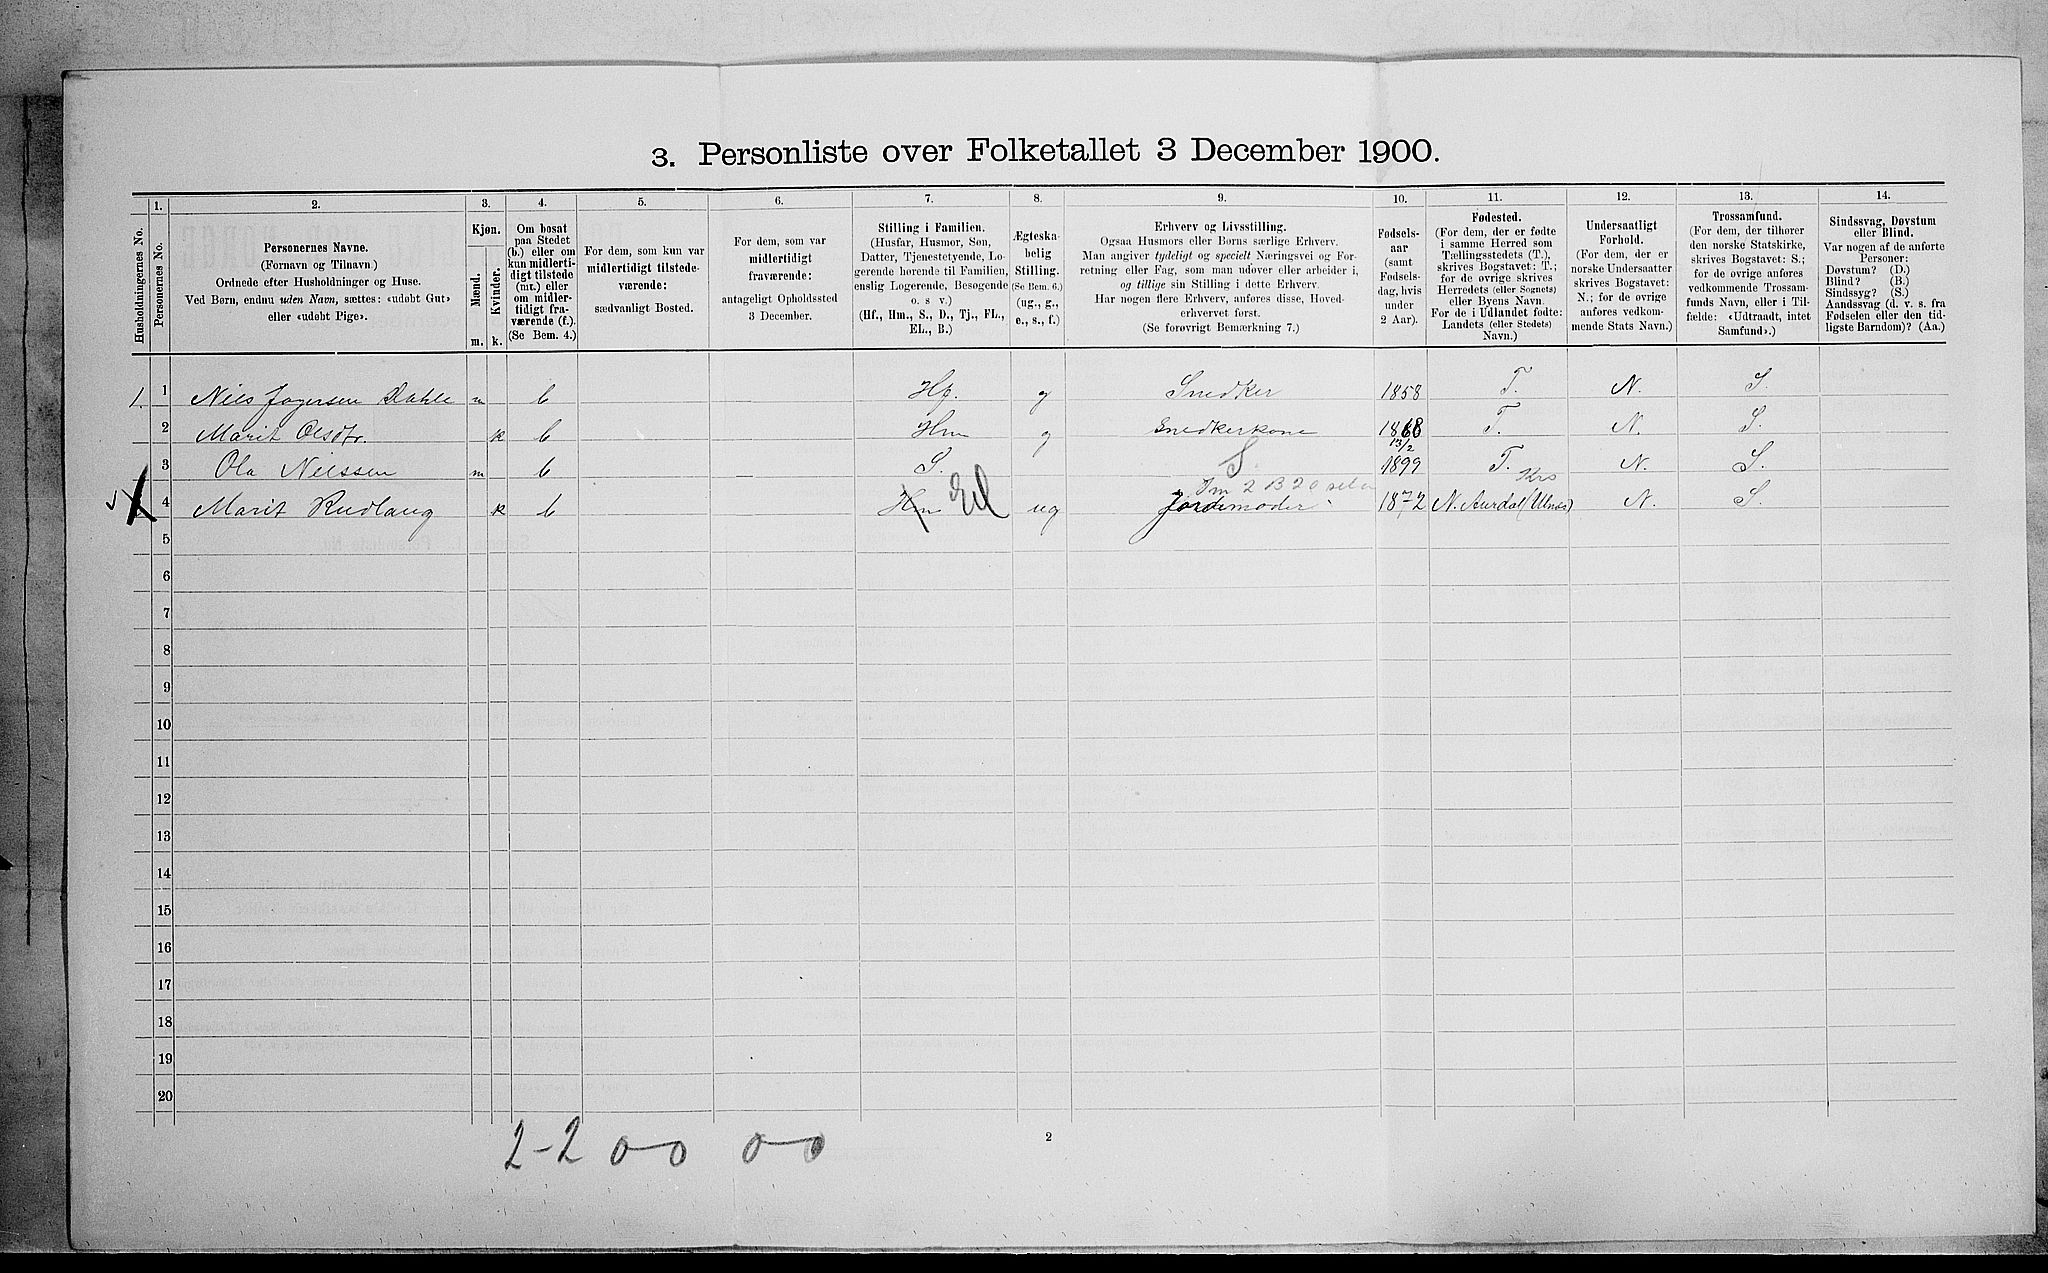 3. Personliste over Folketallet 3 December 1900.
Husholdningernes No.
1.
Personernes No.
2.
Personernes Navne.
(Fornavn og Tilnavn)
Ordnede efter Husholdninger og Huse.
Ved Børn, endnu uden Navn, sættes: «udøbt Gut»
eller «udøbt Pige».
3.
Kjøn.
Mænd.
Kvinder.
m.
k.
4.
Om bosat
paa Stedet
(b.) eller om
kun midlerti-
digt tilstede
(mt.) eller
om midler-
tidigt fra-
værende (f.).
(Se Bem. 4.)
5.
For dem, som kun var
midlertidigt tilstede-
værende:
sædvanligt Bosted.
6.
For dem, som var
midlertidigt
fraværende:
antageligt Opholdssted
3 December.
7.
Stilling i Familien.
(Husfar, Husmor, Søn,
Datter, Tjenestetyende, Lo-
gerende hørende til Familien,
enslig Logerende, Besøgende
o. s v.)
(Hf., Hm., S., D., Tj., FL.,
EL., B.)
8.
Ægteska-
belig
Stilling.
(Se Bem. 6.)
(ug., g.,
e., s., f.)
9.
Erhverv og Livsstilling.
Ogsaa Husmors eller Børns særlige Erhverv.
Man angiver tydeligt og specielt Næringsvei og For-
retning eller Fag, som man udøver eller arbeider i,
og tillige sin Stilling i dette Erhverv.
Har nogen flere Erhverv, anføres disse, Hoved-
erhvervet først.
(Se forøvrigt Bemærkning 7.)
10.
Fødsels-
aar
(samt
Fødsels-
dag, hvis
under
2 Aar).
11.
Fødested.
(For dem, der er fødte
i samme Herred som
Tællingsstedets (T.),
skrives Bogstavet: T.;
for de øvrige skrives
Herredets (eller Sognets)
eller Byens Navn.
For de i Udlandet fødte:
Landets (eller Stedets)
Navn.)
12.
Undersaatligt
Forhold.
(For dem, der er
norske Undersaatter
skrives Bogstavet:
N.; for de øvrige
anføres vedkom-
mende Stats Navn.)
13.
Trossamfund.
(For dem, der tilhører
den norske Statskirke,
skrives Bogstavet: S.;
for de øvrige anføres
vedkommende Trossam-
funds Navn, eller i Til-
fælde: «Udtraadt, intet
Samfund».)
14.
Sindssvag, Døvstum
eller Blind.
Var nogen af de anførte
Personer:
Døvstum? (D.)
Blind? (B.)
Sindssyg? (S.)
Aandssvag (d. v. s. fra
Fødselen eller den tid-
ligste Barndom)? (Aa.)
1. 1 Niels Jogersen Dahle m b Hf. g Snedker 1858 T. N. S.
2 Marit Olsdtr. k b Hm g Snedkerkone 1868 T. N. S.
3 Ola Nielssen m b S. S 13/2 1899 T. N. S.
4 Marit Rudlang k b Hm El ug Jordemoder 1872 N. Aurdal (Ulnæs) Krs N. S.
5
6
7
8
9
10
11
12
13
14
15
16
17
18
19
20
2-2 0-0 0-0
2